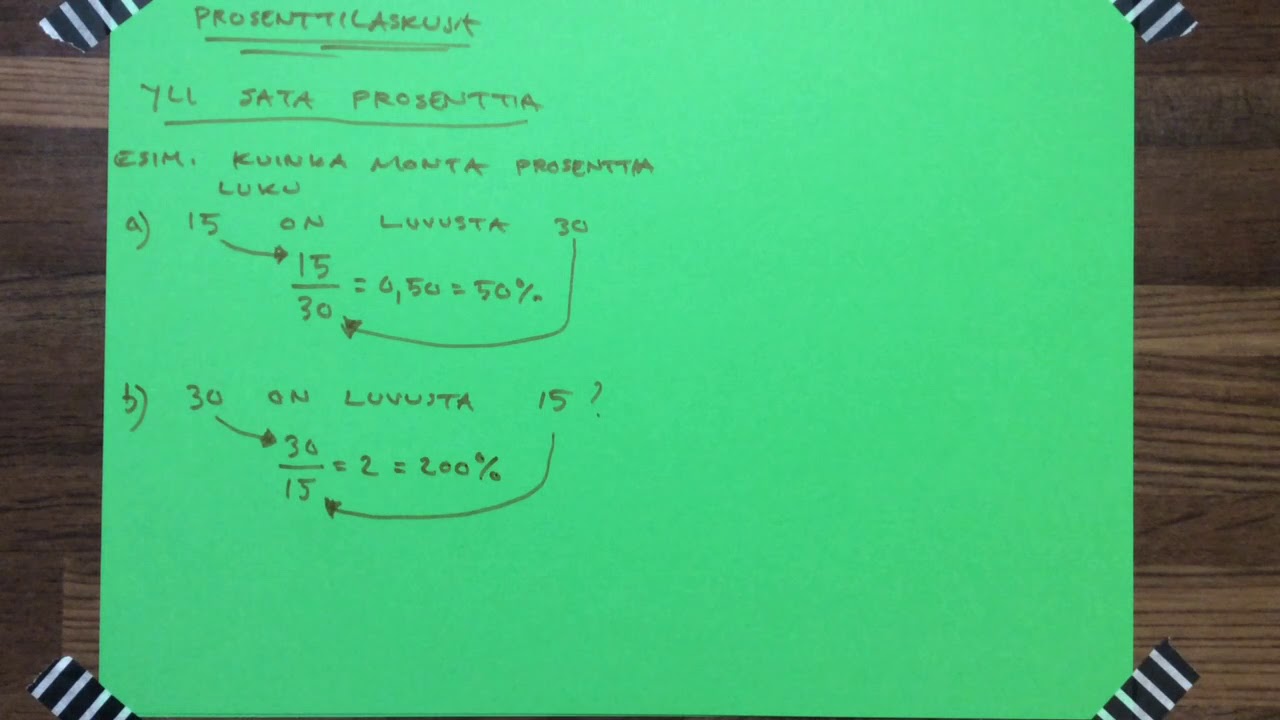 PROSENTTILASKUJA
YLI SATA PROSENTTIA
ESIM. KUINKA MONTA PROSENTTIA
LUKU
a) 15 ON LUVUSTA 30
15/30 = 0,50 = 50%
b) 30 ON LUVUSTA 15?
30/15 = 2 = 200%